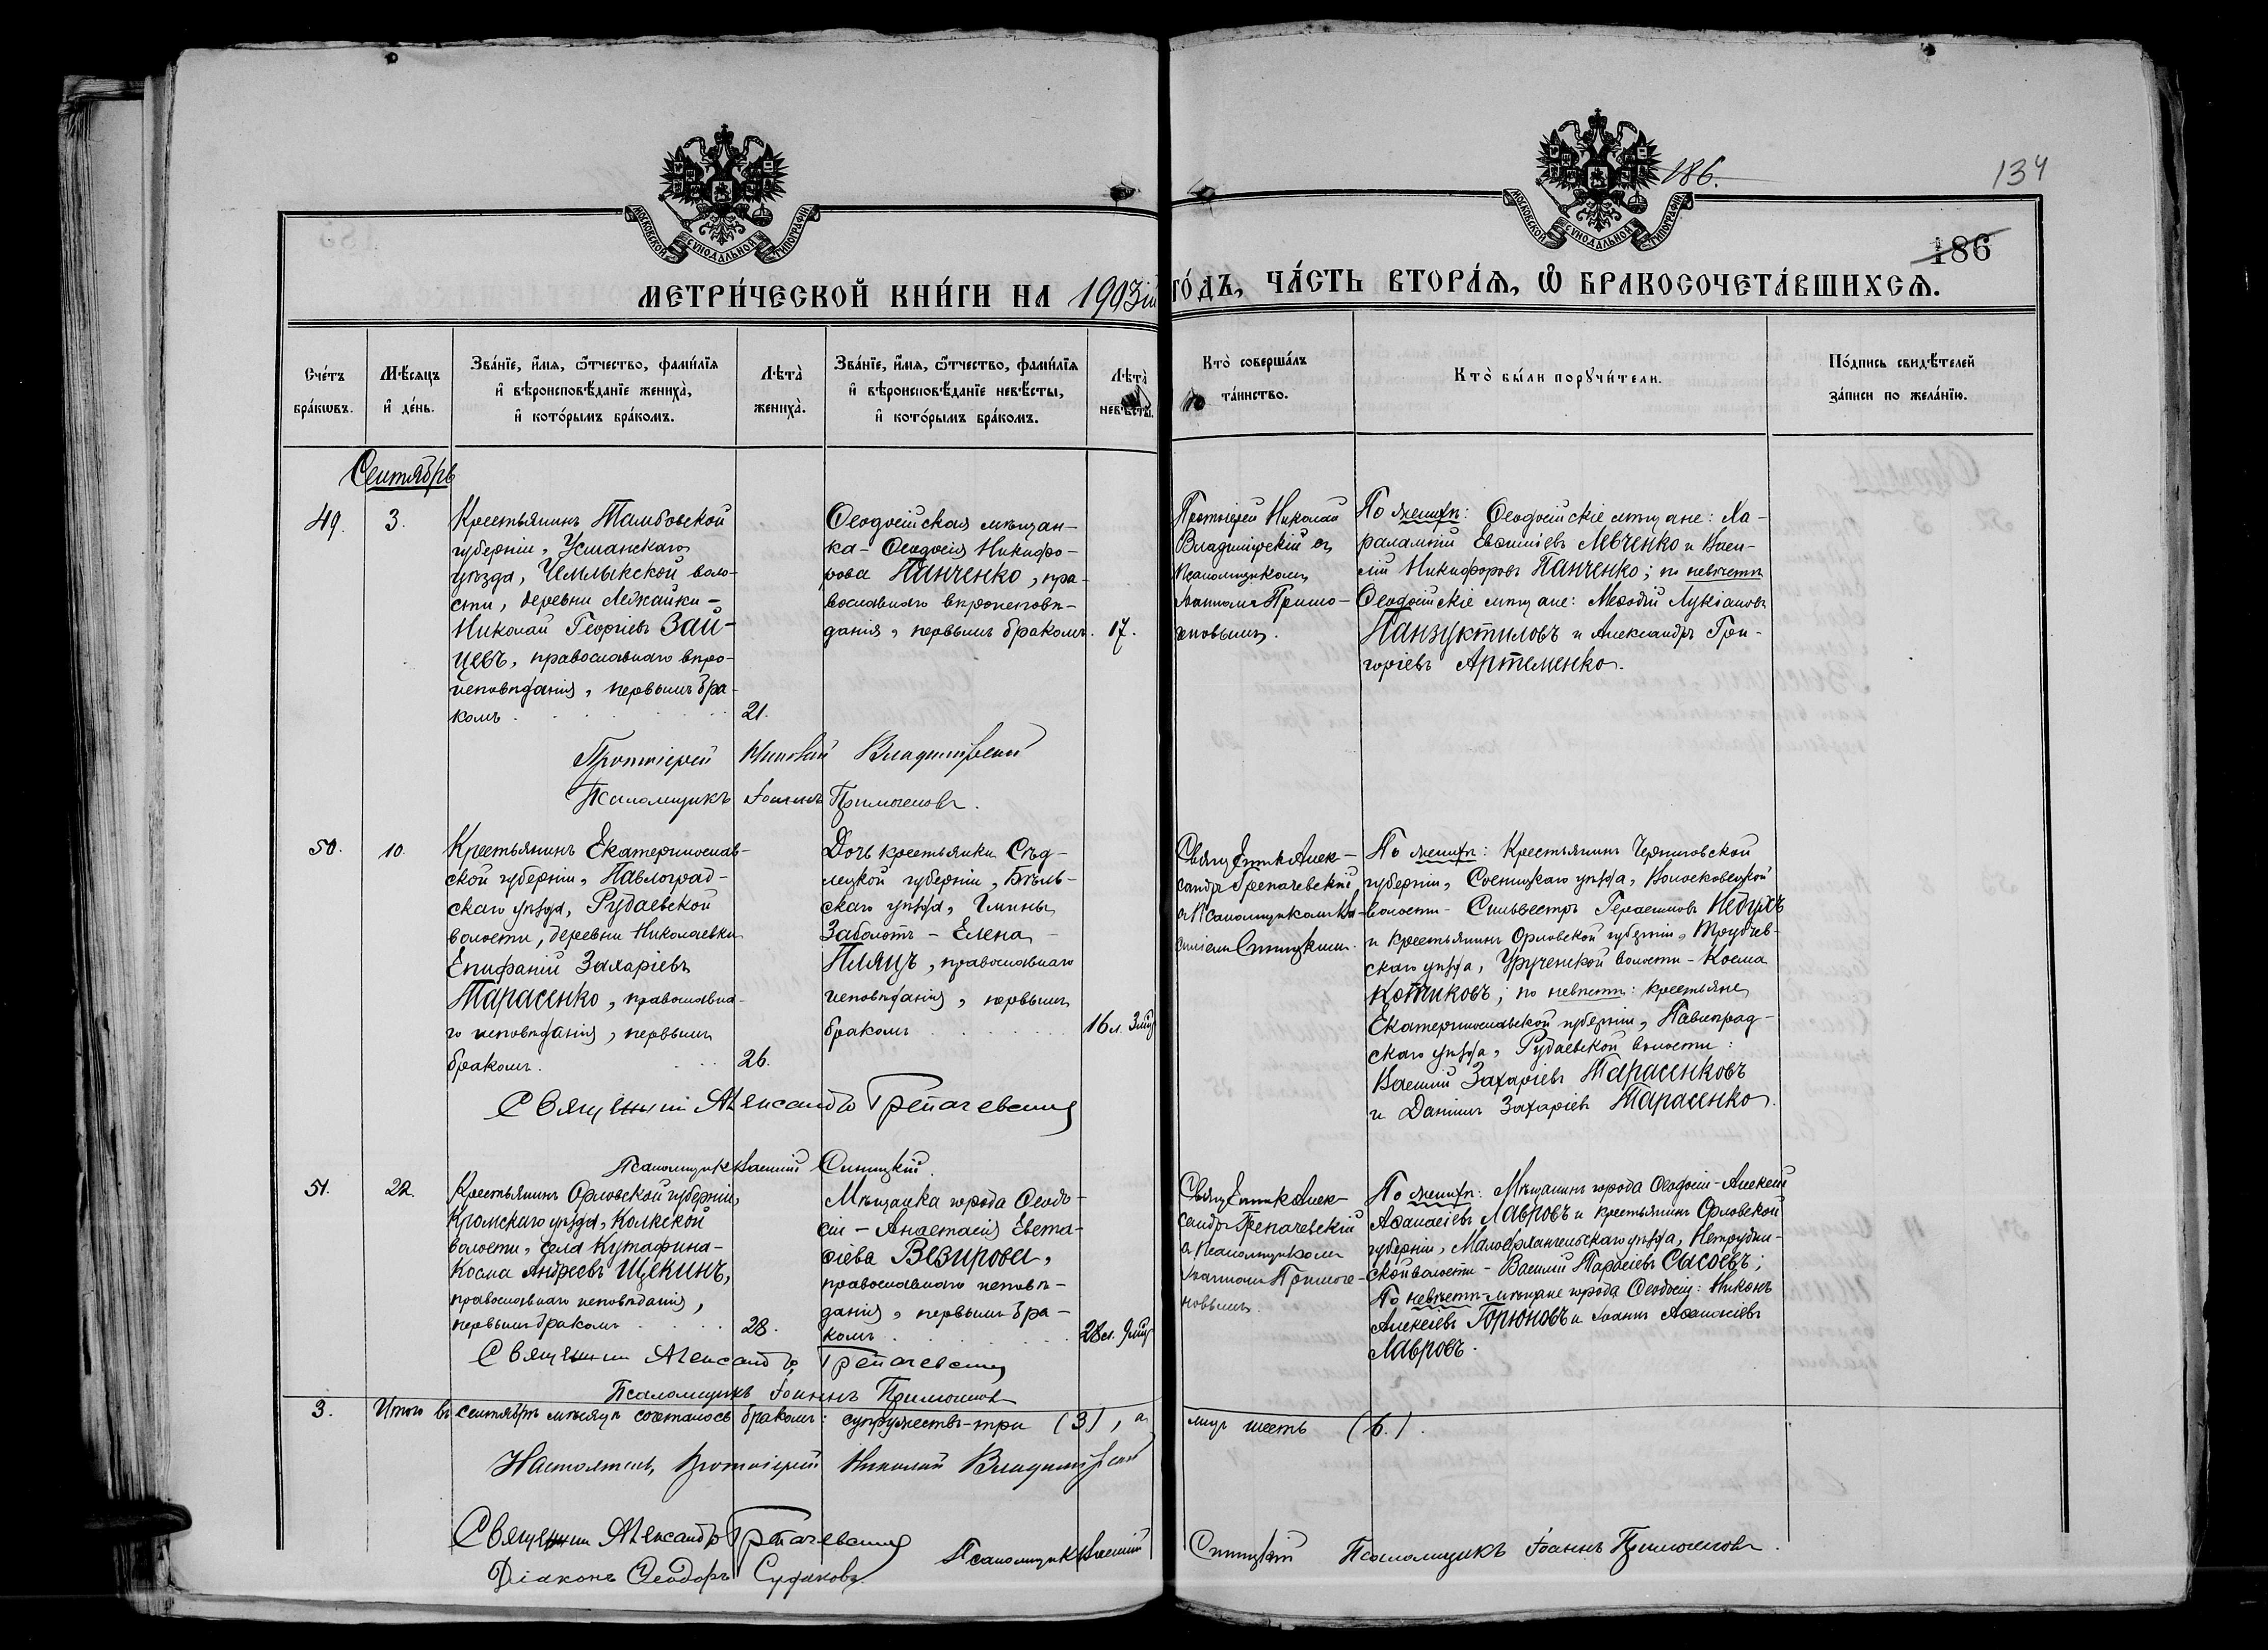 186.
134
186
МОСКОВСКОЙ СУНОДАЛЬНОЙ ТИПОГРАФІИ
МОСКОВСКОЙ СУНОДАЛЬНОЙ ТИПОГРАФІИ
МЕТРИ́ЧЕСКОЙ КНИ́ГИ НА 1903й
ГО́ДЪ, ЧА́СТЬ ВТОРА́Ѧ, Ѽ БРАКОСОЧЕТА́ВШИХСѦ.
Сче́тъ бра́кѡвъ.
Мѣ́сяцъ и҆ де́нь.
Зва́нїе, и҆́мѧ, ѻ҆́тчество, фами́лїѧ
и҆ вѣроисповѣ́данїе жениха̀,
и҆ кото́рымъ бра́комъ.
Лѣта̀ жениха̀.
Зва́нїе, и҆́мѧ, ѻ҆́тчество, фами́лїѧ
и҆ вѣроисповѣ́данїе невѣ́сты,
и҆ кото́рымъ бра́комъ.
Лѣта̀ невѣ́сты.
Кто̀ соверша́лъ
та́инство.
Кто̀ бы́ли порꙋчи́тели.
По́дпись свидѣ́телей
за́писи по жела́нїю.
Сентябрь
49.
3.
Крестьянинъ Тамбовской
губерніи, Усманскаго
уѣзда, Чемлыкской воло-
сти, деревни Лежайки -
Николай Георгіевъ Зай-
цевъ, православнаго вѣро-
исповѣданія, первымъ бра-
комъ
21.
Ѳеодосійская мѣщан-
ка - Ѳеодосія Никифо-
рова Панченко, пра-
вославнаго вѣроисповѣ-
данія, первымъ бракомъ.
17.
Протоіерей Николай
Владимірскій съ
псаломщикомъ
Іоанномъ Примо-
ченовымъ.
По женихѣ: Ѳеодосійскіе мѣщане: Ха-
ралампій Евѳиміевъ Левченко и Васи-
лій Никифоровъ Панченко; по невѣстѣ
Ѳеодосійскіе мѣщане: Меѳодій Лукіановъ
и Александръ Гри-
горіевъ Артеменко.
Протоіерей Николай Владимірскій
Псаломщикъ Іоаннъ Примоченовъ.
50.
10.
Крестьянинъ Екатеринослав-
ской губерніи, Павлоград-
скаго уѣзда, Рудаевской
волости, деревни Николаевки
Епифаній Захаріевъ
Тарасенко, православна-
го исповѣданія, первымъ
бракомъ.
26.
Дочь крестьянки Сѣд-
лецкой губерніи, Бѣль-
скаго уѣзда, Гмины
Заболоть - Елена
Пляцъ, православнаго
исповѣданія, первымъ
бракомъ
16 л. 3 мѣс
Священникъ Алек-
сандръ Трепачевскій
съ псаломщикомъ Ва-
силіемъ Синицкимъ.
По женихѣ: Крестьянинъ Черниговской
губерніи, Сосницкаго уѣзда, Волосковецкой
волости - Сильвестръ Герасимовъ Недухъ
и крестьянинъ Орловской губерніи, Трубчев-
скаго уѣзда, Урученской волости - Косма
Котиковъ; по невѣстѣ: крестьяне
Екатеринославской губерніи, Павлоград-
скаго уѣзда, Рудаевской волости:
Василій Захаріевъ Тарасенковъ
и Даніилъ Захаріевъ Тарасенко.
Священникъ Александръ Трепачевскій
Псаломщикъ Василій Синицкій.
51.
22.
Крестьянинъ Орловской губерніи,
Кромскаго уѣзда,
волости, села Кутафина -
Косма Андреевъ Щекинъ,
православнаго исповѣданія,
первымъ бракомъ
28.
Мѣщанка города Ѳеодо-
сіи - Анастасія Евста-
ѳіева Везирова,
православнаго исповѣ-
данія, первымъ бра-
комъ
28 л. 9 мѣс
Священникъ Алек-
сандръ Трепачевскій
съ псаломщикомъ
Іоанномъ Примоче-
новымъ.
По женихѣ: Мѣщанинъ города Ѳеодосіи - Алексѣй
Аѳанасіевъ Лавровъ и крестьянинъ Орловской
губерніи, Малоархангельскаго уѣзда,
волости - Василій Тарасіевъ Сысоевъ;
По невѣстѣ - мѣщане города Ѳеодосіи: Никонъ
Алексѣевъ Горюновъ и Іоаннъ Аѳанасіевъ
Лавровъ.
Священникъ Александръ Трепачевскій
Псаломщикъ Іоаннъ Примоченовъ
3. Итого въ сентябрѣ мѣсяцѣ сочеталось бракомъ: супружествъ - три (3), а
лицъ шесть (6.).
Настоятель, Протоіерей Николай Владимірскій
Священникъ Александръ Трепачевскій
Псаломщикъ Василій Синицкій Псаломщикъ Іоаннъ Примоченовъ.
Діаконъ Ѳеодоръ Судаковъ.